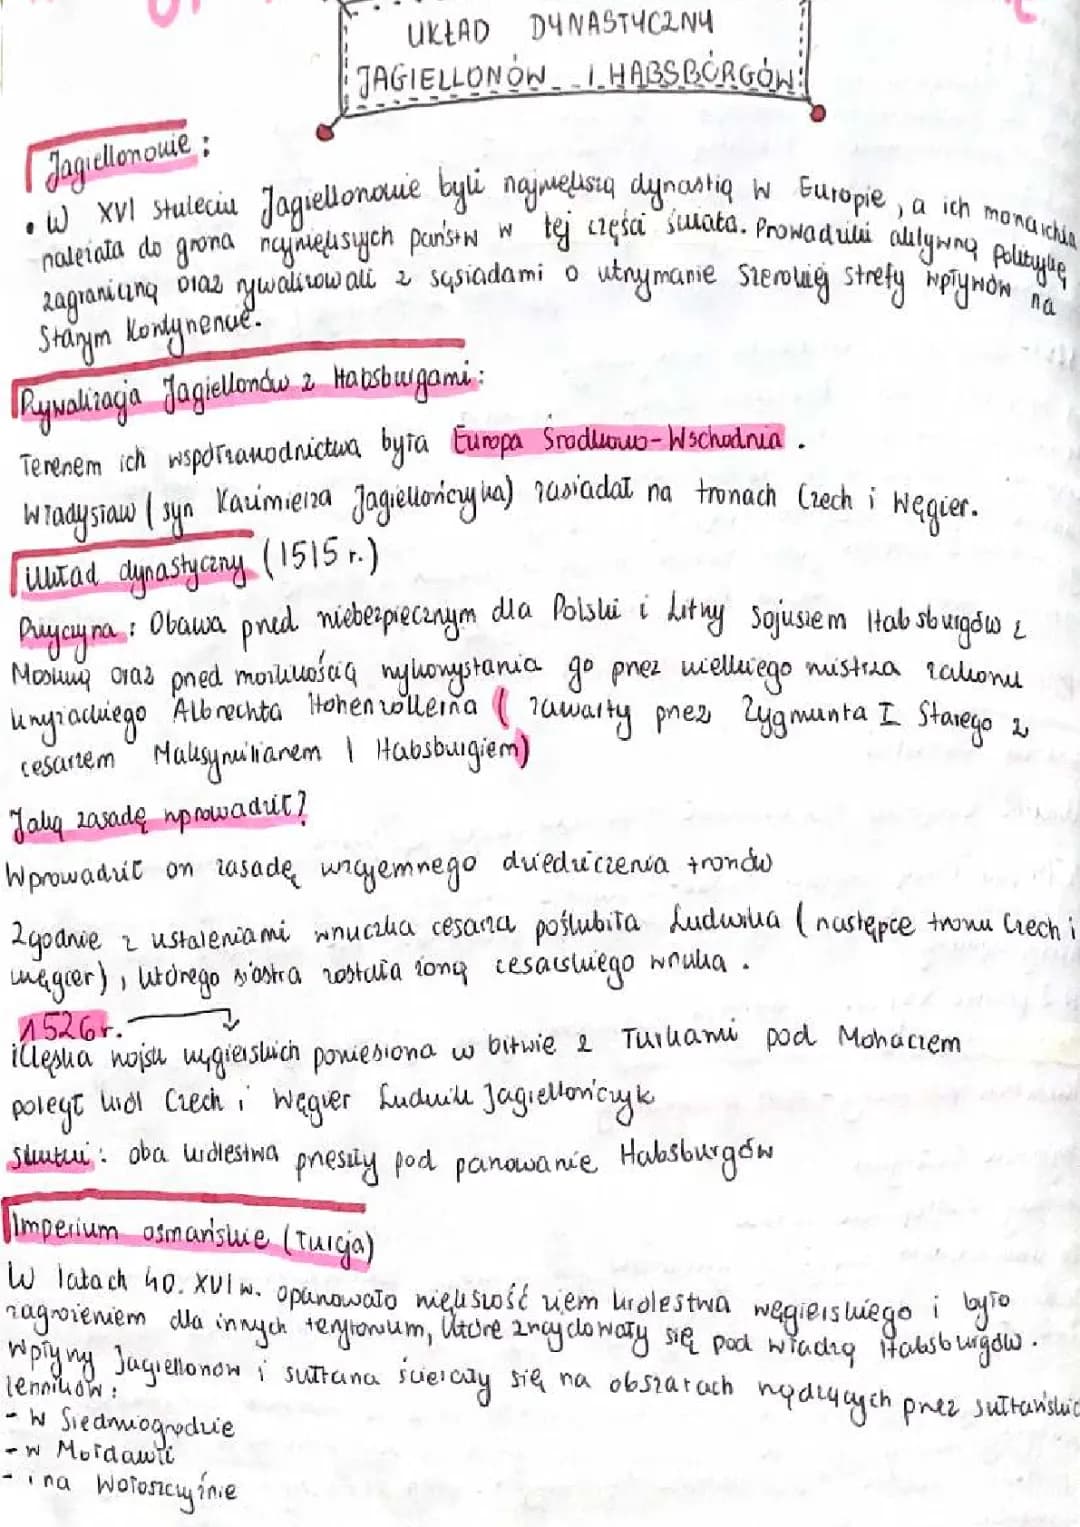 UKŁAD DYNASTYCZNY
JAGIELLONÓW I HABSBÓRGÓW
Jagiellonowie:
• W XVI stuleciu Jagiellonowie byli największą dynastią w Europie, a ich monarchia
należała do grona największych państw w tej części świata. Prowadzili aktywną politykę
zagraniczną oraz rywalizowali z sąsiadami o utrzymanie szerokiej strefy wpływów na
Starym Kontynencie.
Rywalizacja Jagiellonów z Habsburgami:
Terenem ich współzawodnictwa była Europa Środkowo-Wschodnia.
Władysław (syn Kazimierza Jagiellończyka) zasiadał na tronach Czech i Węgier.
Układ dynastyczny (1515 r.)
Przyczyna: Obawa przed niebezpiecznym dla Polski i Litwy sojuszem Habsburgów z
Moskwą oraz przed możliwością wykorzystania go przez wielkiego mistrza zakonu
krzyżackiego Albrechta Hohenzollerna (zawarty przez Zygmunta I Starego z
cesarzem Maksymilianem I Habsburgiem)
Jaką zasadę wprowadził?
Wprowadził on zasadę wzajemnego dziedziczenia tronów
Zgodnie z ustaleniami wnuczka cesarza poślubiła Ludwika (następce tronu Czech i
węgier), którego siostra została żoną cesarskiego wnuka.
1526r.
klęska wojsk węgierskich poniesiona w bitwie z Turkami pod Mohaczem
poległ król Czech i Węgier Ludwik Jagiellończyk
Skutki: oba królestwa przeszły pod panowanie Habsburgów
Imperium osmańskie (Turcja)
W latach 40. XVI w. opanowało większość ziem królestwa węgierskiego i było
zagrożeniem dla innych terytorium, które znajdowały się pod władzą Habsburgów.
Wpływy Jagiellonów i sułtana ścierały się na obszarach rządzących przez sułtańskich
lenników:
- w Siedmiogrodzie
- w Mołdawii
- i na Wołoszczyźnie